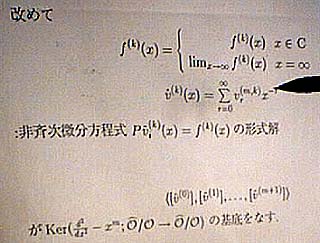 改めて
f^{(k)}(x) = { f^{(k)}(x) x ∈ C
lim_{x→∞} f^{(k)}(x) x = ∞
v̂^{(k)}(x) = ∑_{r=0}^{∞} v_r^{(m,k)} x^{-r}
:非斉次微分方程式 Pv̂^{(k)}(x) = f^{(k)}(x) の形式解
⟨[v̂^{(0)}], [v̂^{(1)}], …, [v̂^{(m+1)}]⟩
が Ker(d²/dx² − x^m; Ô/O → Ô/O) の基底をなす.